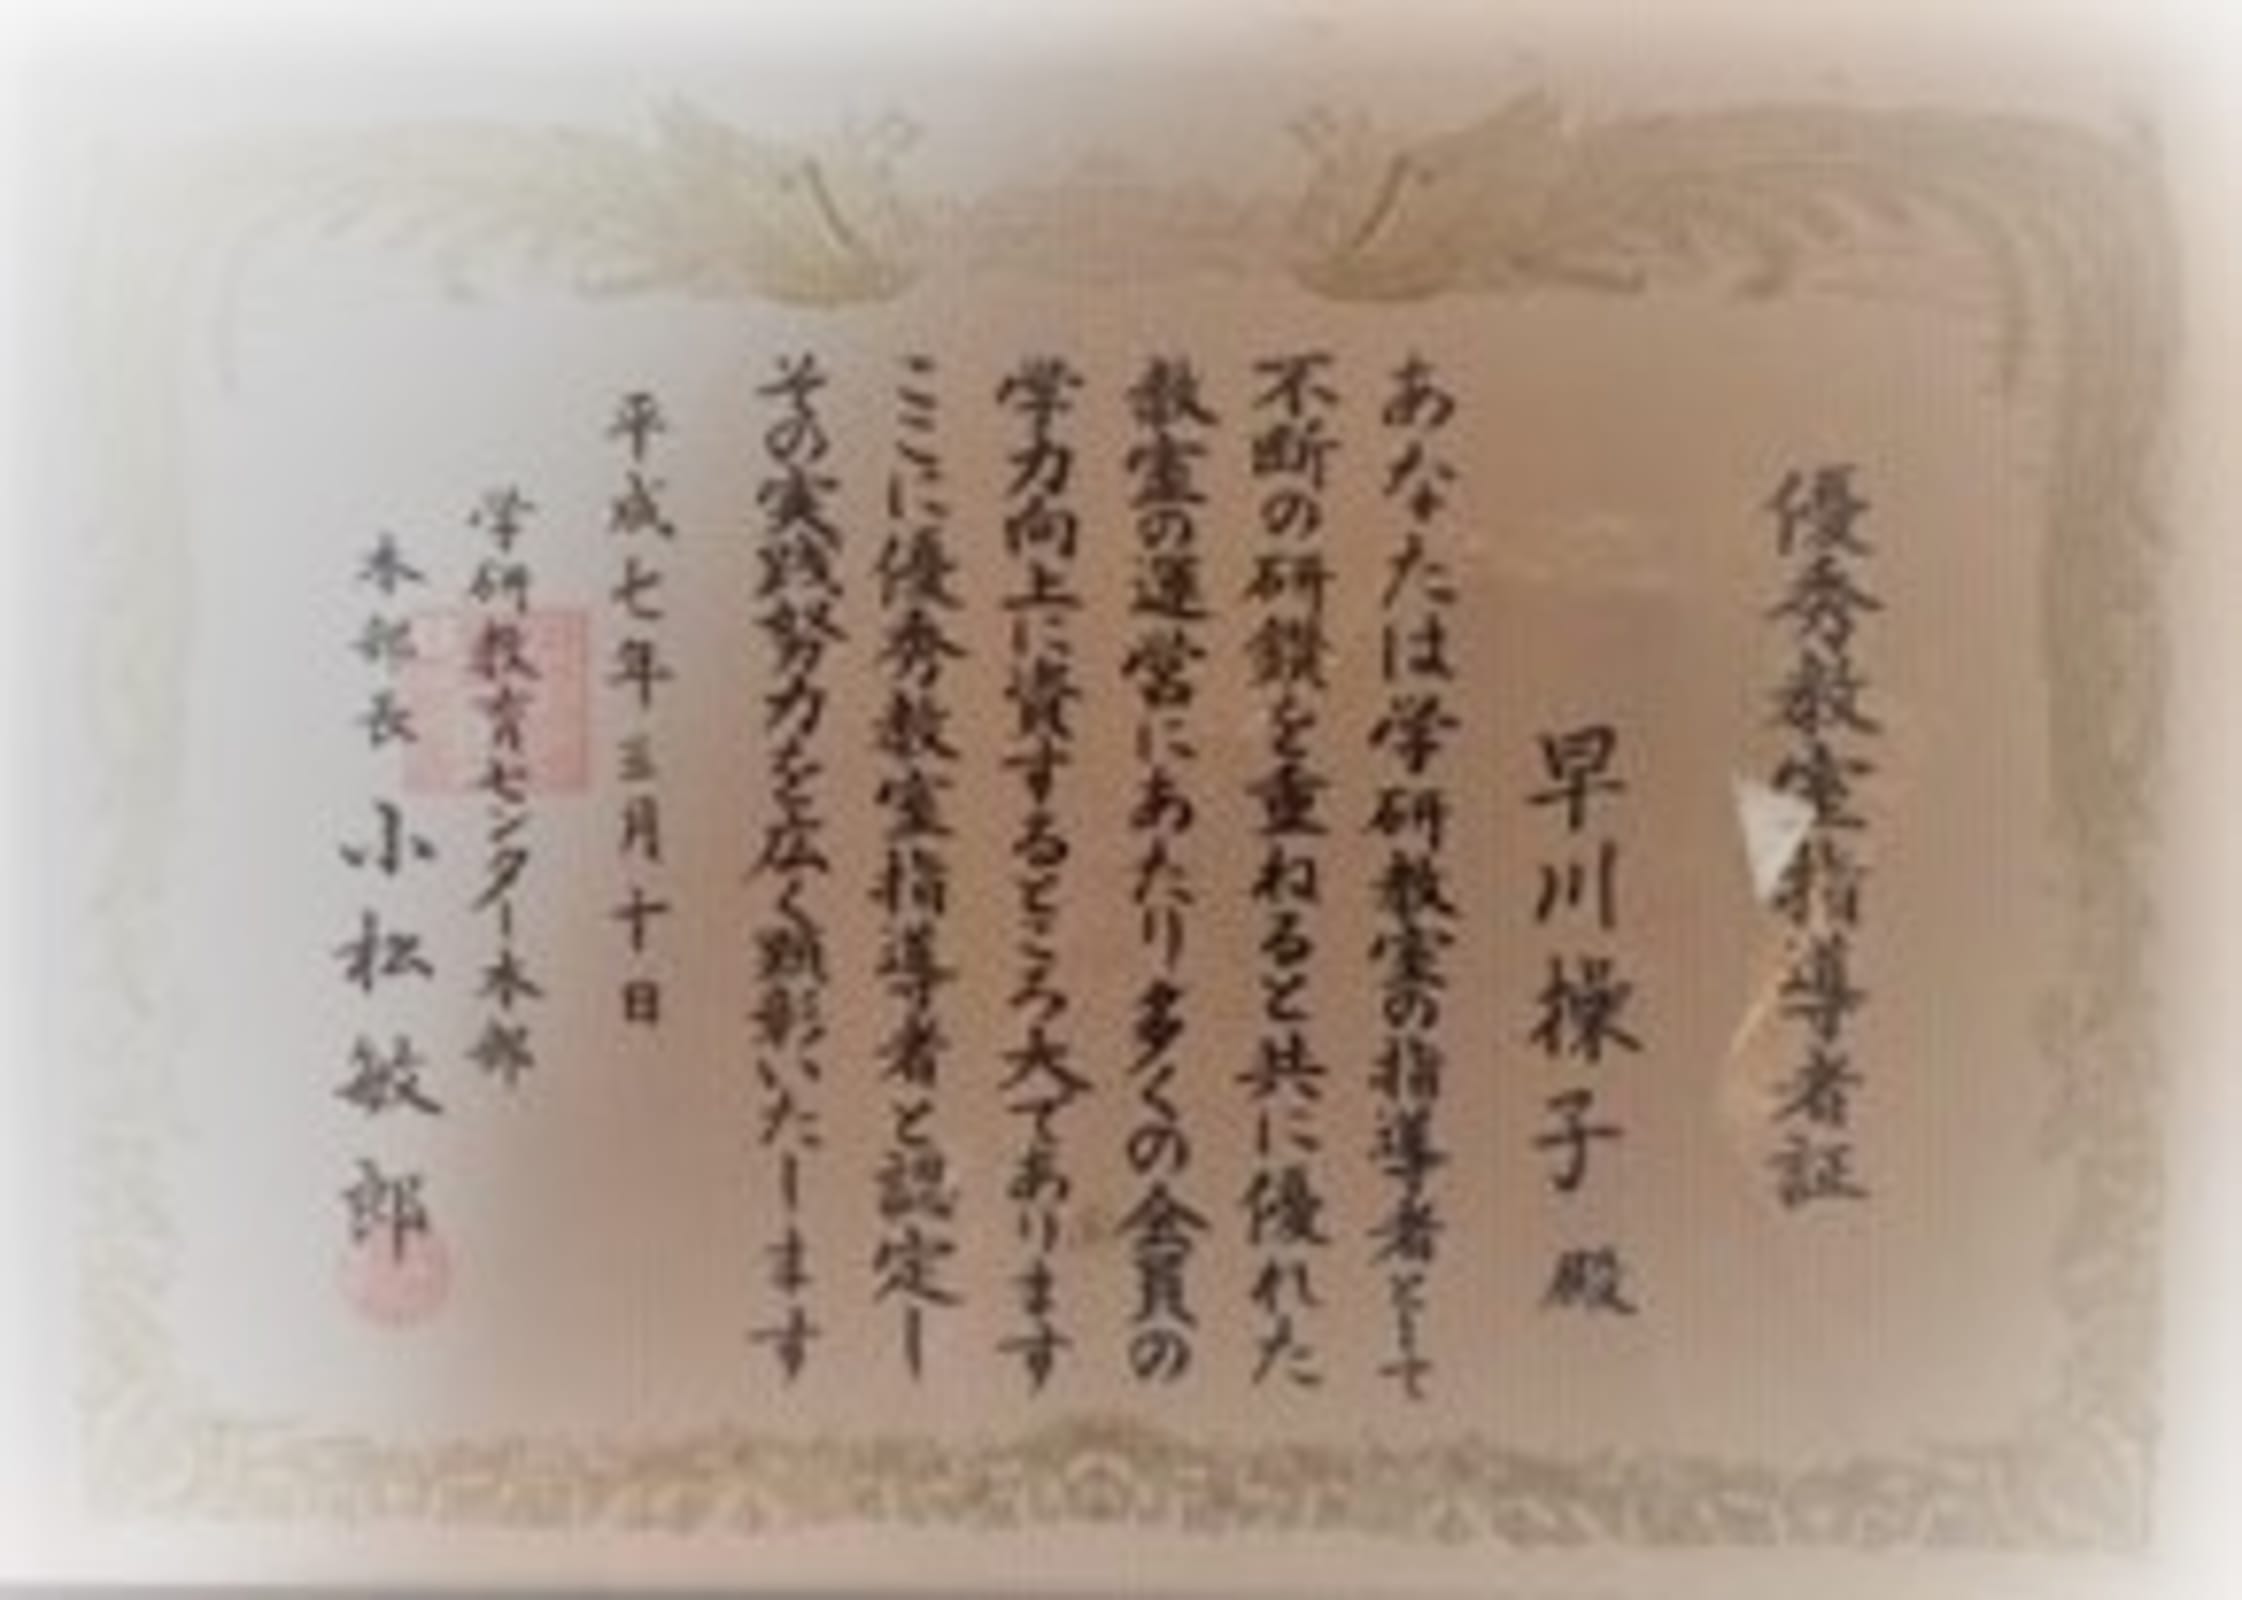 優秀教室指導者証
早川操子殿
あなたは学研教室の指導者として
不断の研鑽を重ねると共に優れた
教室の運営にあたり多くの会員の
学力向上に資するところ大であります
ここに優秀教室指導者と認定し
その実践努力を広く顕彰いたします
平成七年三月十日
学研教育センター本部
本部長 小松敏郎